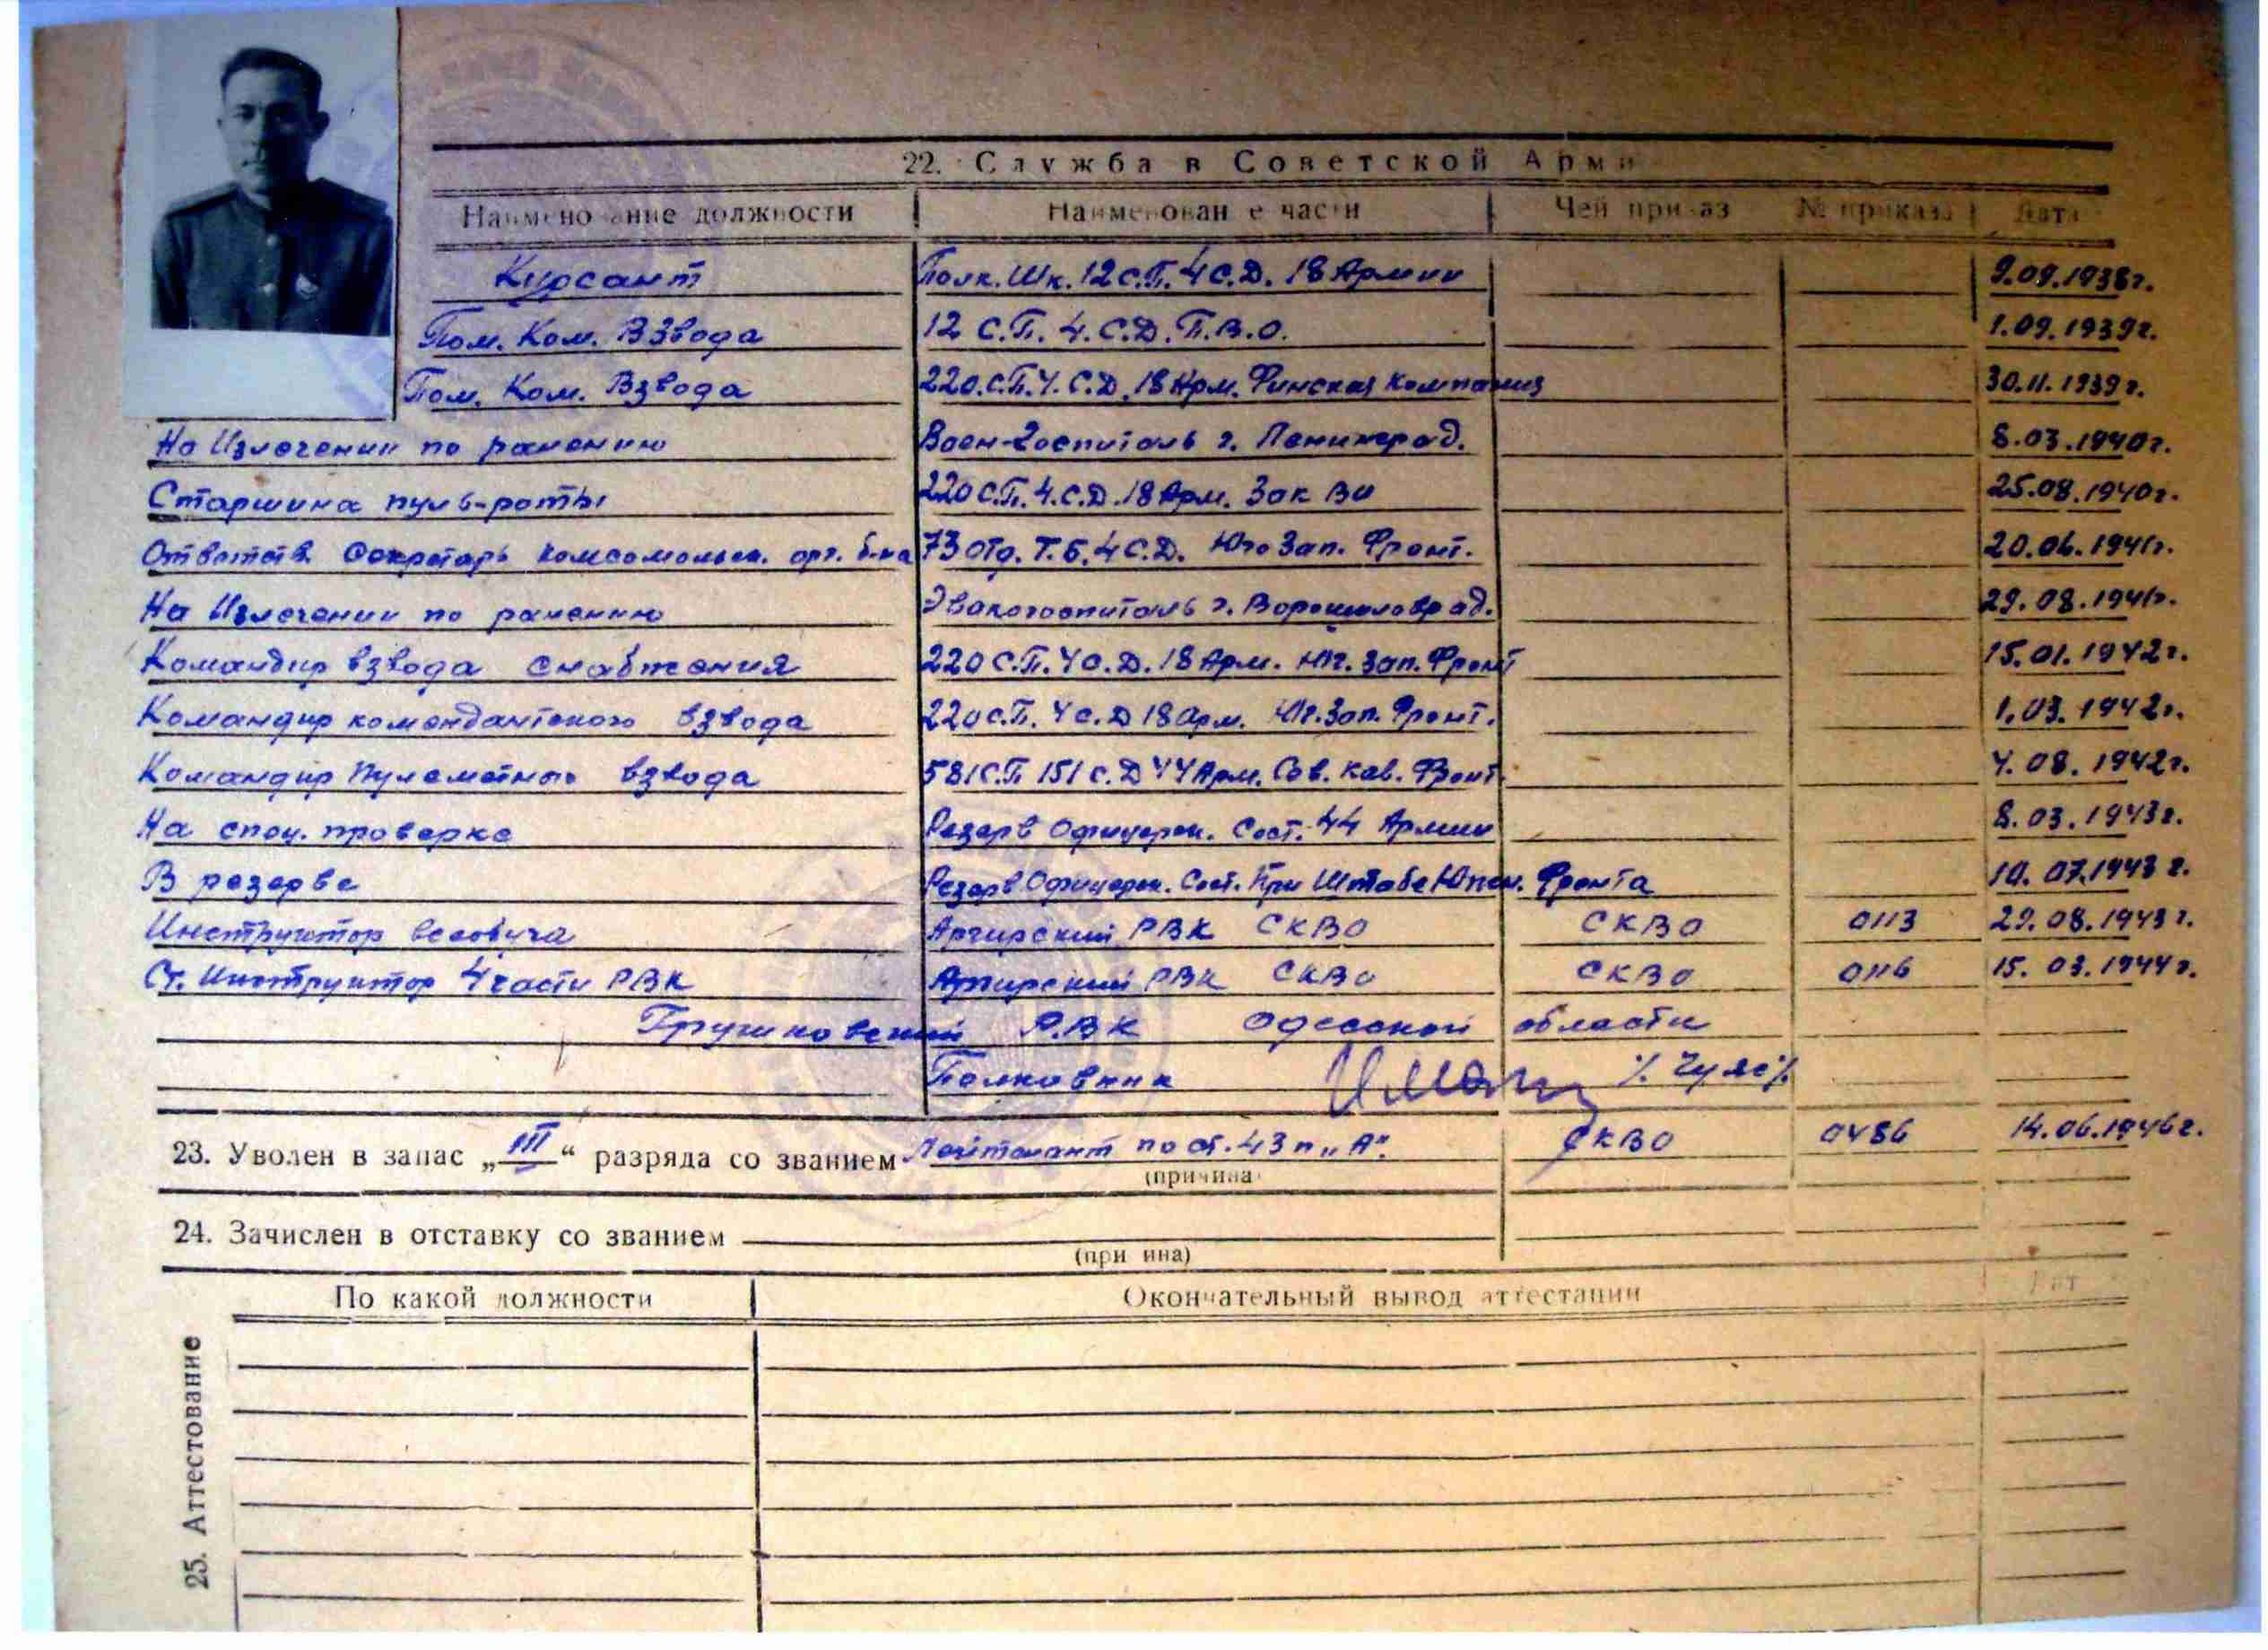 22. Служба в Советской Арми
Наименование должности Наименование части Чей приказ № приказа Дата
Курсант Полк. Шк. 12 С.П. 4 С.Д. 18 Армии 9.09.1938г.
Пом. Ком. Взвода 12 С.П. 4. С.Д. П.В.О. 1.09.1939г.
Пом. Ком. Взвода 220. С.П. 4. С.Д. 18 Арм. Финская Компания 30.11.1939г.
На Излечении по ранению Воен-Госпиталь г. Ленинград. 8.03.1940г.
Старшина пуль-роты 220 С.П. 4. С.Д. 18 Арм. Зак ВО 25.08.1940г.
Ответств. Секретарь комсомольск. орг. б-на 73 отд. Т.Б. 4 С.Д. Юго Зап. Фронт. 20.06.1941г.
На Излечении по ранению Эвакогоспиталь г. Ворошиловград. 29.08.1941г.
Командир взвода снабжения 220 С.П. 4 С.Д. 18 Арм. Юг. Зап. Фронт 15.01.1942г.
Командир комендантского взвода 220 С.П. 4 С.Д 18 Арм. Юг. Зап. Фронт. 1.03.1942г.
Командир Пулеметного взвода 581 С.П 151 С.Д 44 Арм. Сев. Кав. Фронт. 4.08.1942г.
На спец. проверке Резерв Офицерск. Сост. 44 Армии 8.03.1943г.
В резерве Резерв Офицерск. Сост. При Штабе Южн. Фронта 10.07.1943г.
Инструктор всевобуча Апгирский РВК СКВО СКВО 0113 29.08.1943г.
Ст. Инструктор 4 части РВК Апгирский РВК СКВО СКВО 0116 15.03.1944г.
Р.ВК Одесской области
Полковник
23. Уволен в запас „III“ разряда со званием Лейтенант по ст. 43 п „А“. СКВО 0486 14.06.1946г.
(причина)
24. Зачислен в отставку со званием
(причина)
По какой должности Окончательный вывод аттестации Дат
25. Аттестование